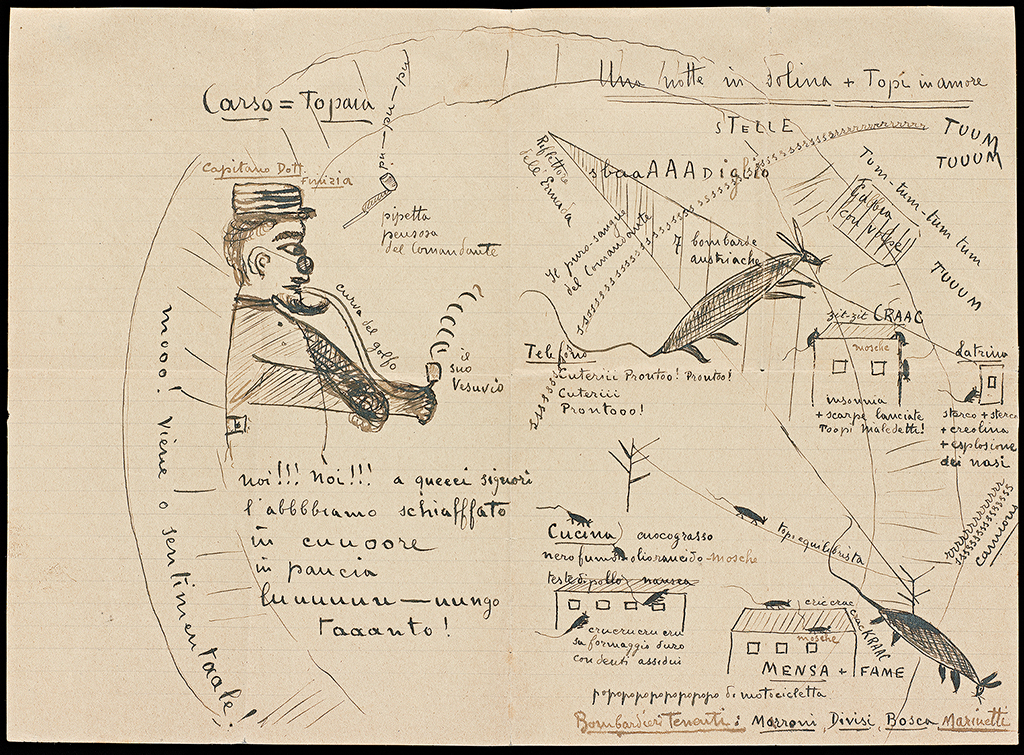 Carso = Topaia
pu—pu—pu
Una notte in dolina + Topi in amore
STELLE
ssssssssrrrrrrrrrrr
TUUM
TUUUM
Capitano Dott.
Finizia
pipetta
pensosa
del Comandante
Riflettore
dell' Ermada
sbaaAAADiglio
Tum-tum-tum tum
TUUUM
Gabbia
con volpe
Il puro-sangue
del Comandante
7 bombarde
austriache
curva del golfo
il
suo
Vesuvio
Telefono
Cuteriii Prontoo! Prontoo!
Cuteriii
Prontooo!
zit-zit CRAAC
mosche
insonnia
+ scarpe lanciate
Toopi maledetti!
Latrina
sterco + sterco
+ creolina
+ esplosione
dei nasi
rrrrrrrrrrrr
ssssssssssss
camions
mooo! viene o sentimentaale!
noi!!! noi!!! a queeci signori
l'abbbbbiamo schiaffffato
in cuuoore
in pancia
luuuuuu—uungo
taaanto!
Cucina cuocograsso
nerofumo olio rancido mosche
teste di pollo nausea
crucrucru cru
su formaggio duro
con denti assidui
topi equilibrista
cric crac
crac KRAAC
mosche
MENSA + FAME
popopopopopopopo di motocicletta
Bombardieri Tenenti: Marroni, Divisi, Bosca, Marinetti